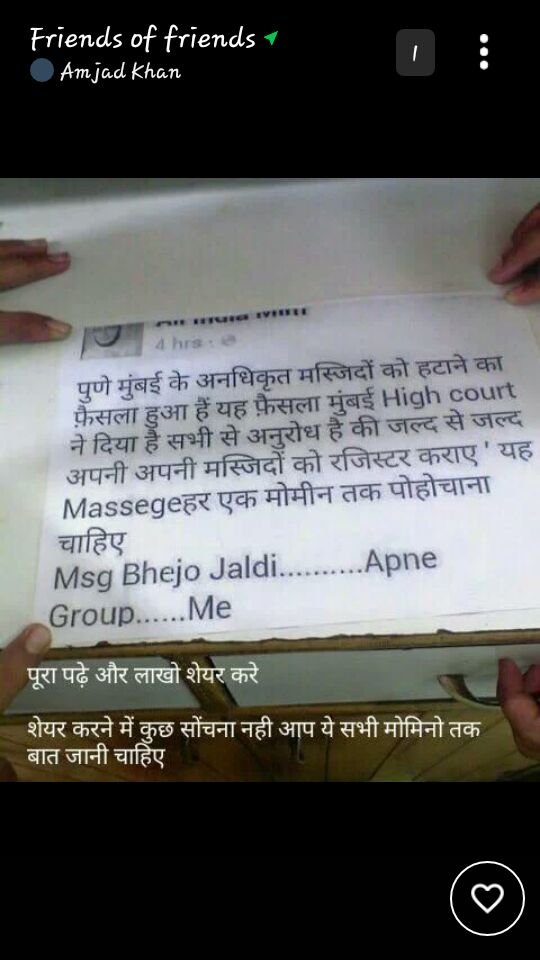 Friends of friends
Amjad Khan
1
4 hrs
पुणे मुंबई के अनधिकृत मस्जिदों को हटाने का
फ़ैसला हुआ हैं यह फ़ैसला मुंबई High court
ने दिया है सभी से अनुरोध है की जल्द से जल्द
अपनी अपनी मस्जिदों को रजिस्टर कराए ' यह
Massegeहर एक मोमीन तक पोहोचाना
चाहिए
Msg Bhejo Jaldi..........Apne
Group......Me
पूरा पढ़े और लाखो शेयर करे
शेयर करने में कुछ सोंचना नही आप ये सभी मोमिनो तक
बात जानी चाहिए